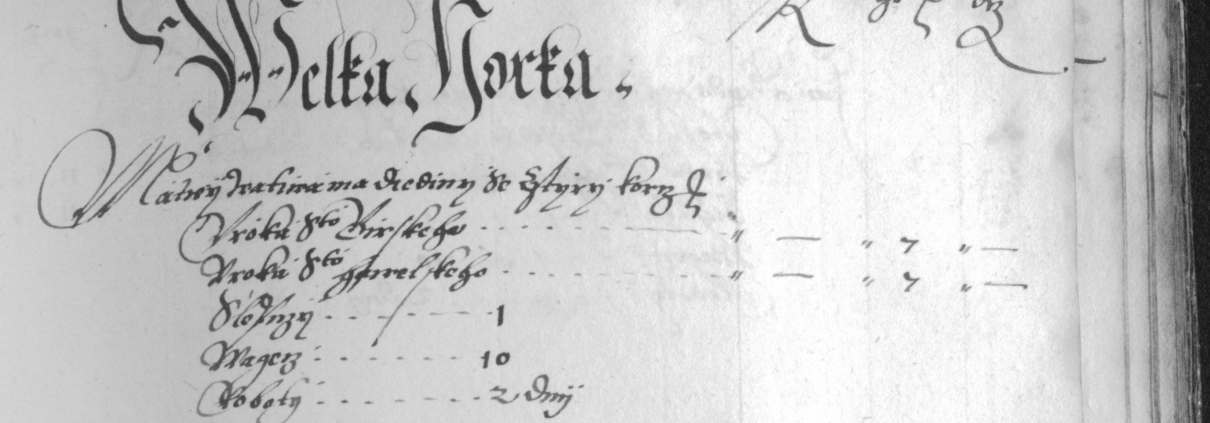 Welka Horka.
Matiey Kratina ma dediny Se Cztyry korcz
Vroka Sto Girskeho - - - „ — „ 7 „ —
Vroka Sto hawelskeho - - - „ — „ 7 „ —
Slepiczy - - - - 1
Wagecz - - - - 10
Roboty - - - - 2 dny